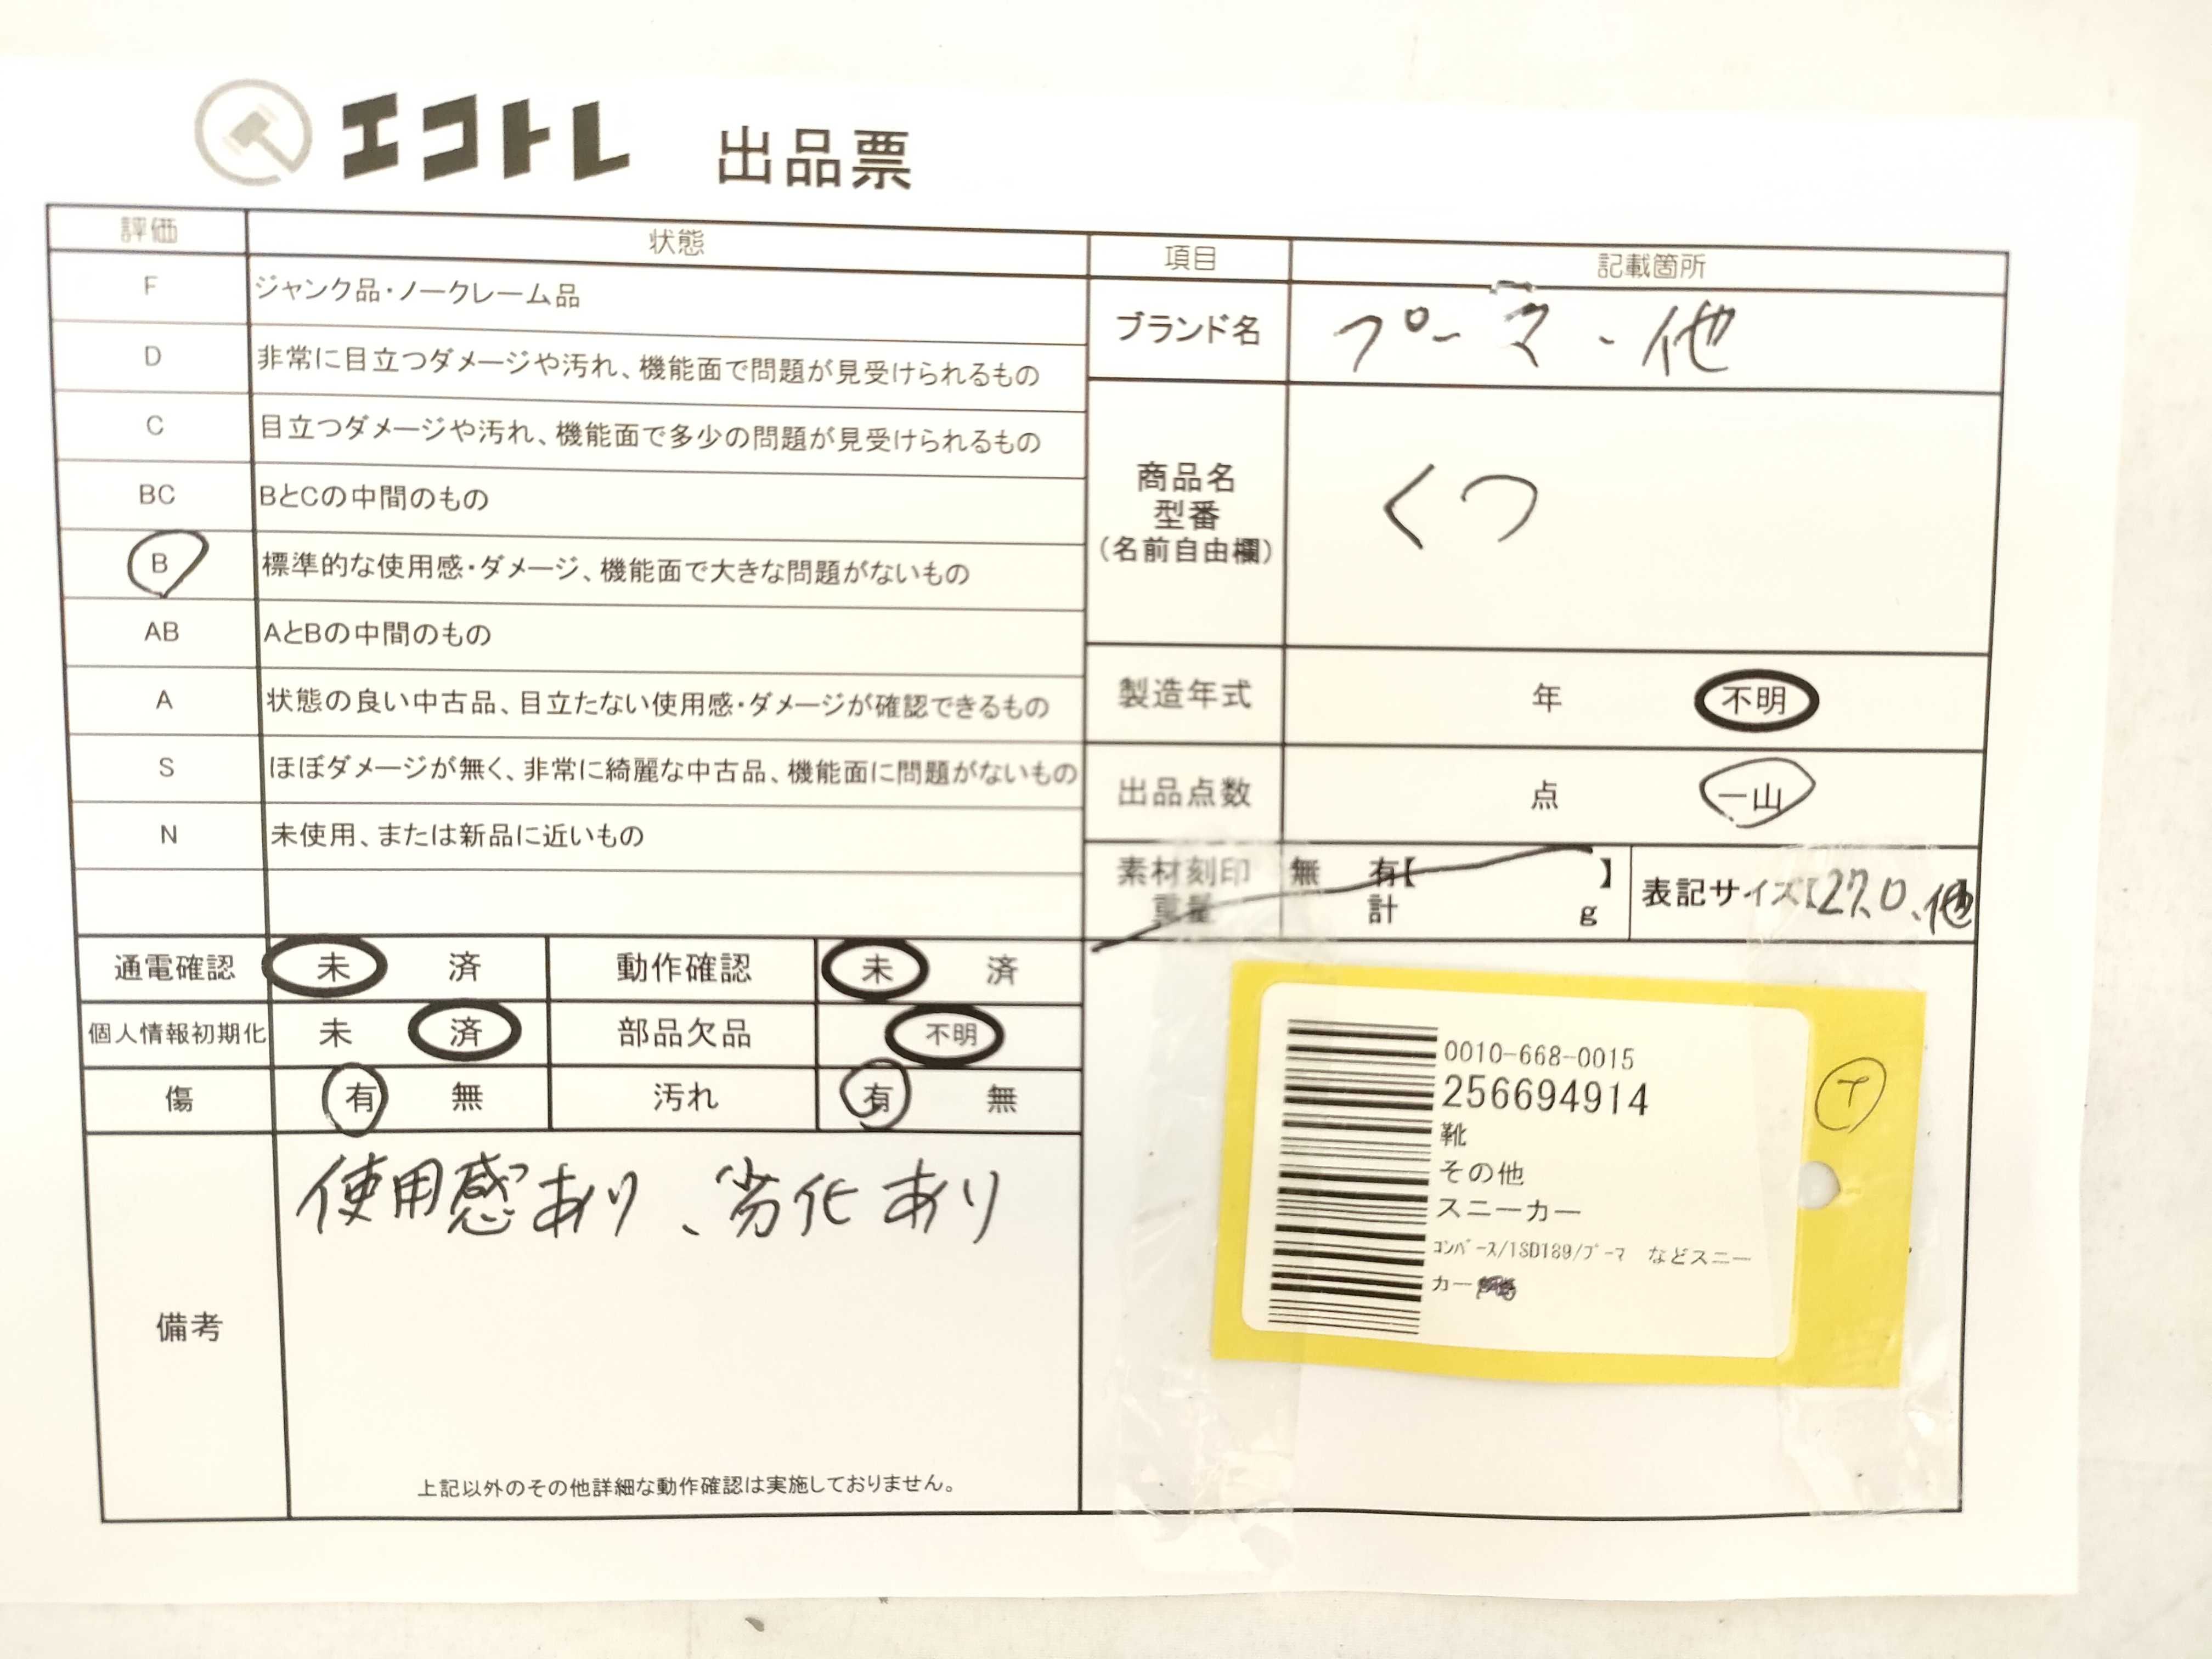 エコトレ 出品票
評価 状態
F ジャンク品・ノークレーム品
D 非常に目立つダメージや汚れ、機能面で問題が見受けられるもの
C 目立つダメージや汚れ、機能面で多少の問題が見受けられるもの
BC BとCの中間のもの
B 標準的な使用感・ダメージ、機能面で大きな問題がないもの
AB AとBの中間のもの
A 状態の良い中古品、目立たない使用感・ダメージが確認できるもの
S ほぼダメージが無く、非常に綺麗な中古品、機能面に問題がないもの
N 未使用、または新品に近いもの
通電確認 未 済 動作確認 未 済
個人情報初期化 未 済 部品欠品 不明
傷 有 無 汚れ 有 無
備考
使用感あり、劣化あり
上記以外のその他詳細な動作確認は実施しておりません。
項目 記載箇所
ブランド名 プーマ・他
商品名
型番
(名前自由欄)
くつ
製造年式 年 不明
出品点数 点 一山
素材刻印 無 有【 】
重量 計 g
表記サイズ【27.0、他】
0010-668-0015
256694914
靴
その他
スニーカー
ｺﾝﾊﾞｰｽ/1SD189/ﾌﾟｰﾏ などスニー
カー